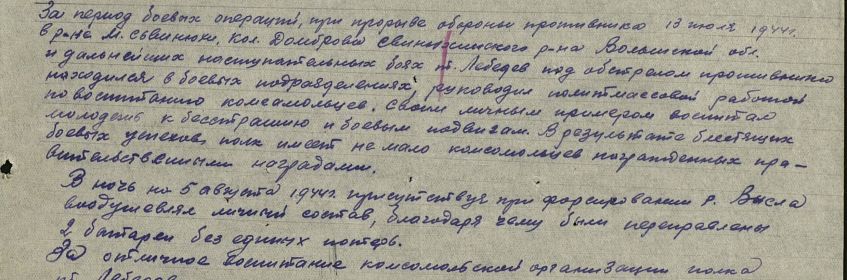 За период боевых операций, при прорыве обороны противника 13 июля 1944г.
в р-не м. Свинюхи, кол. Домброва Свинюхинского р-на Волынской обл.
и дальнейших наступательных боях лт. Лебедев под обстрелом противника
находился в боевых подразделениях, руководил политмассовой работой
по воспитанию комсомольцев. Своим личным примером воспитал
молодежь к бесстрашию и боевым подвигам. В результате блестящих
боевых успехов, полк имеет не мало комсомольцев награжденных пра-
вительственными наградами.
В ночь на 5 августа 1944г. присутствуя при форсировании р. Висла
воодушевлял личный состав, благодаря чему были переправлены
2 батареи без единых потерь.
За отличное воспитание комсомольской организации полка
лт. Лебедев